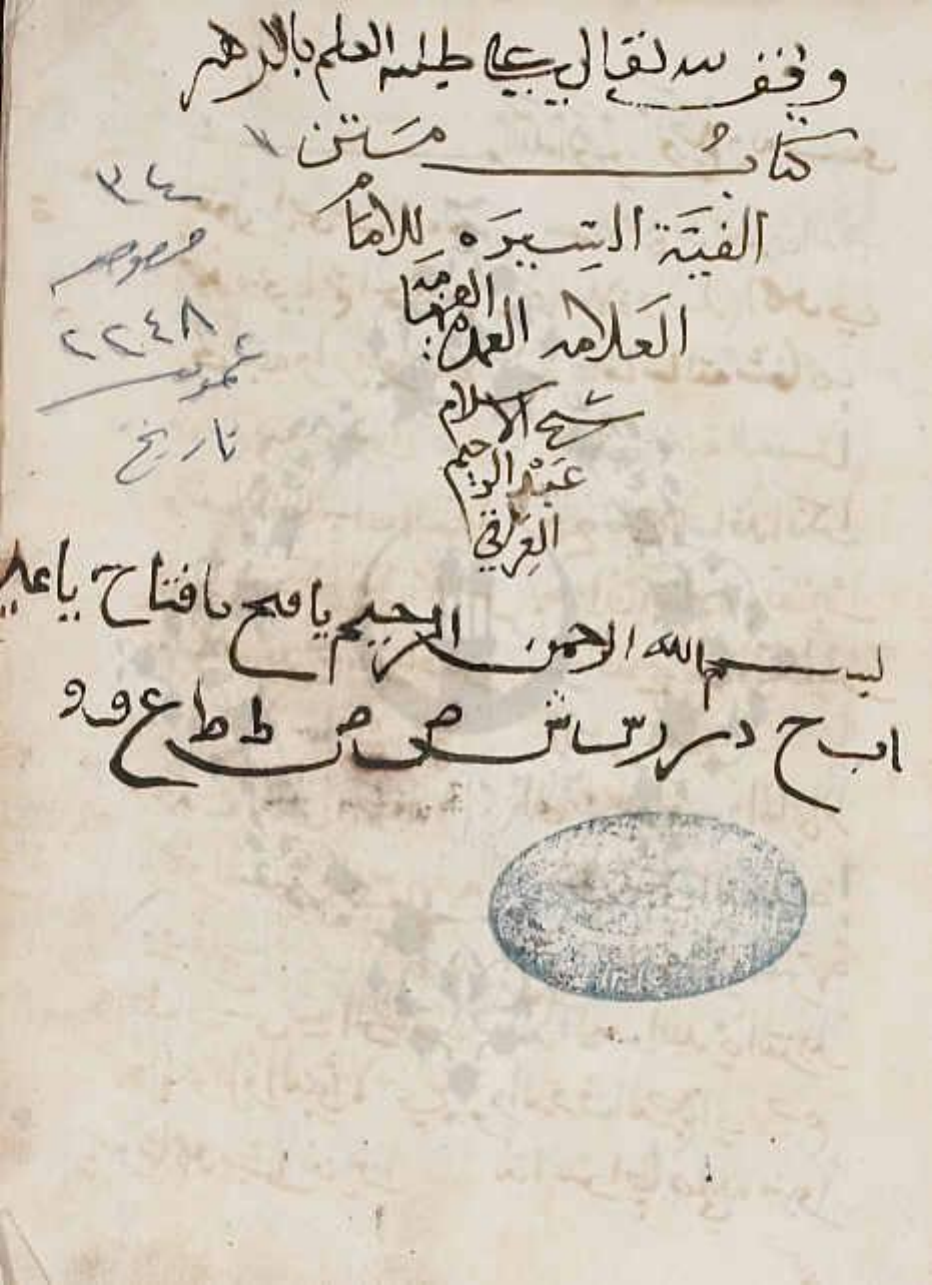 وقف لله تعالى علي طلبة العلم بالازهر
كتاب متن
الفية السيره للامام
العلامه العمدة الفهامة
شيخ الاسلام
عبد الرحيم
العراقي
٣٤
خصوص
٢٢٤٨
عموم
تاريخ
بسم الله الرحمن الرحيم يا فتاح يا
ا ب ح د ر س ش ص ض ط ظ ع و و